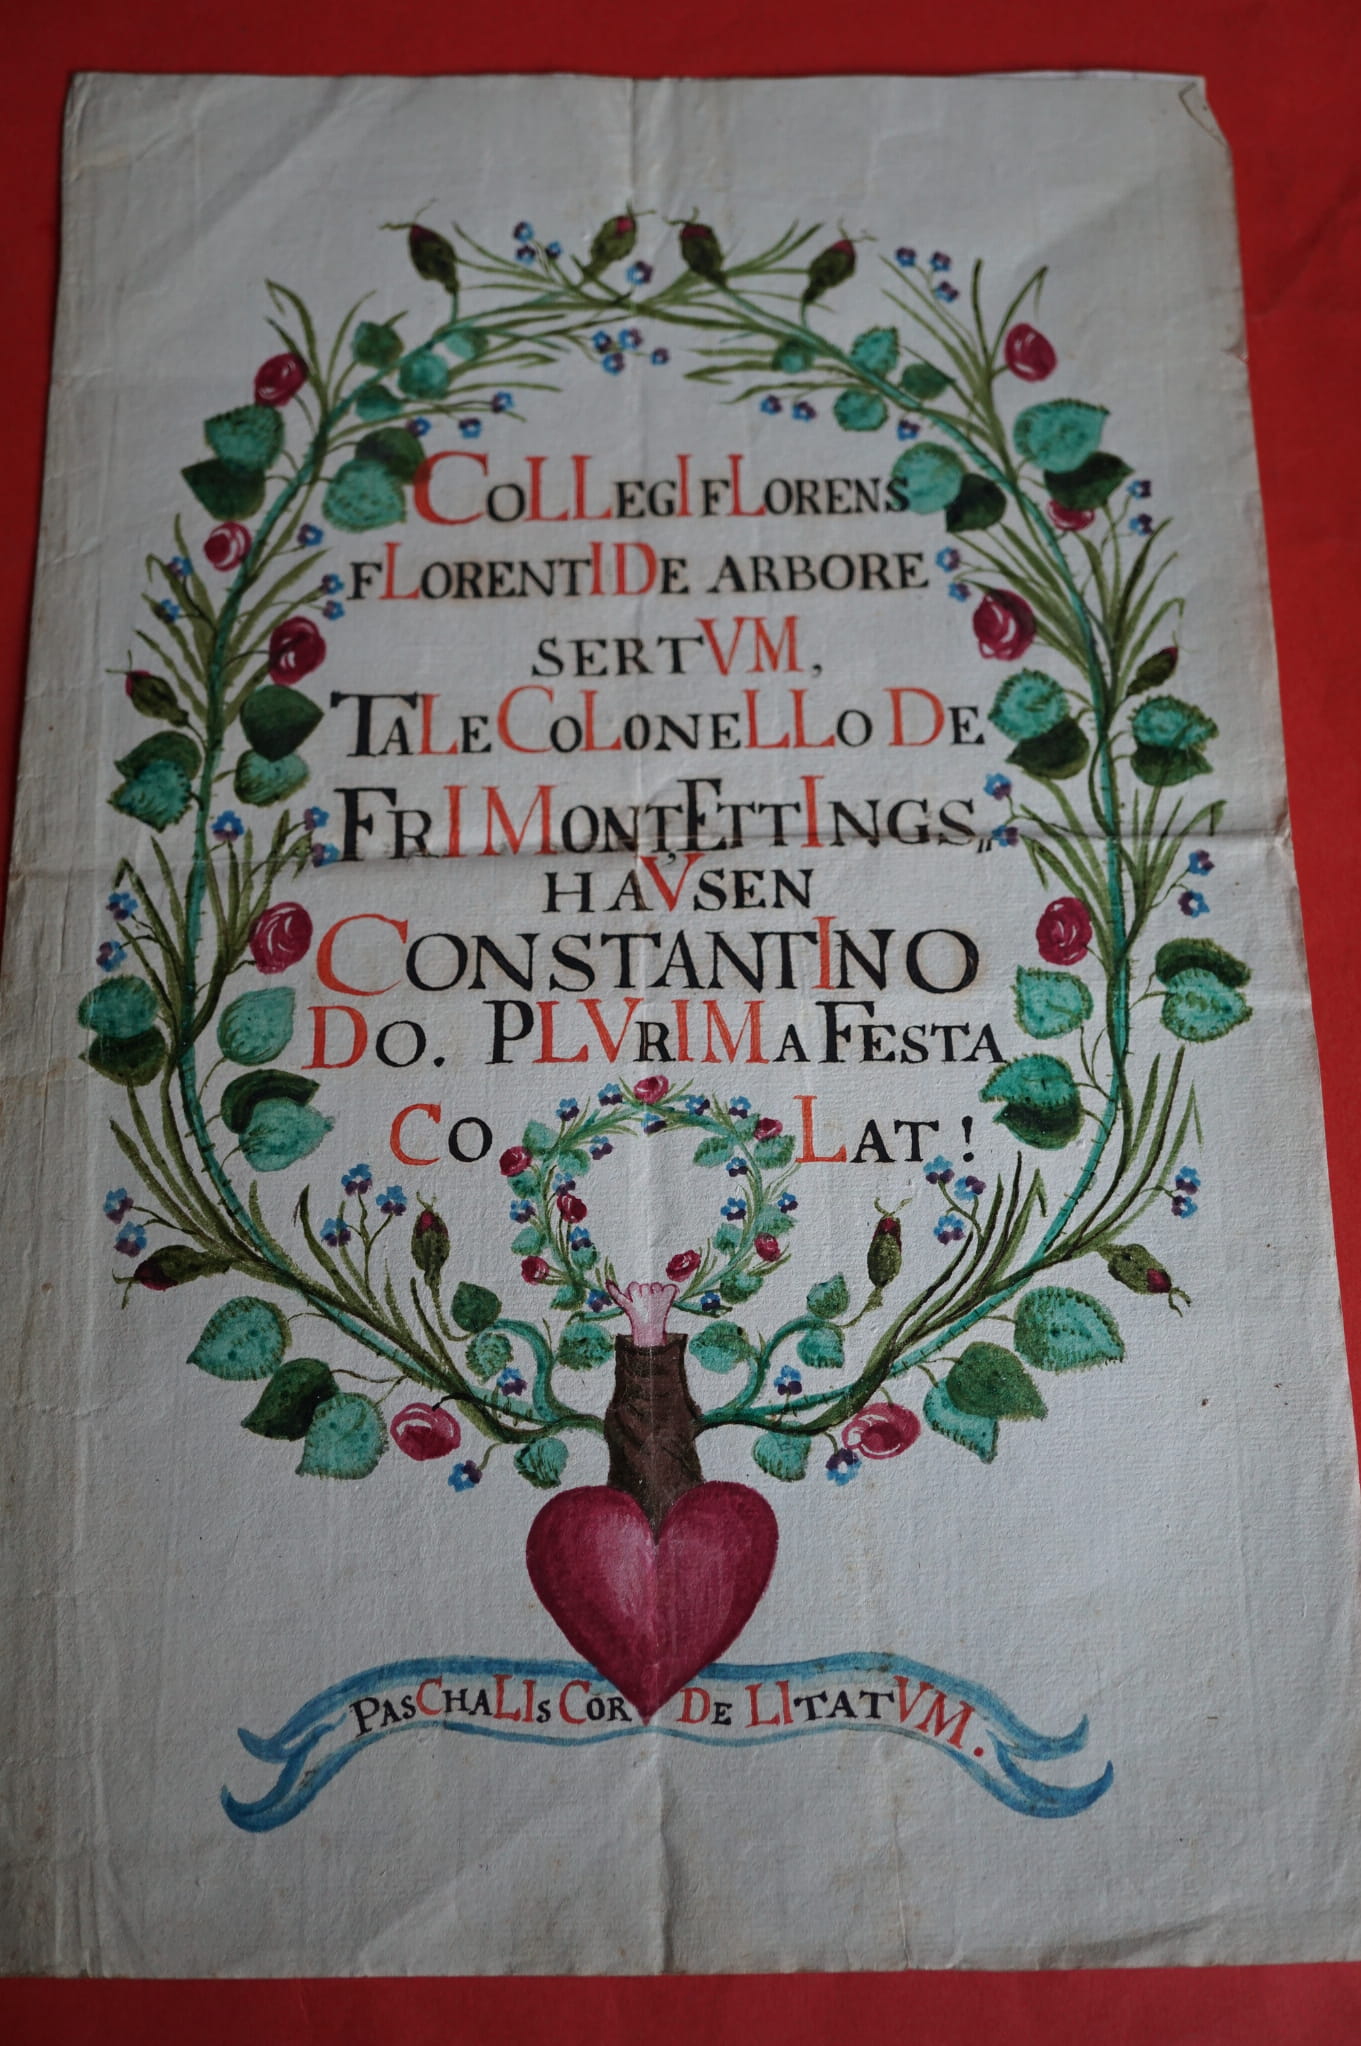 COLLEGI FLORENS
FLORENTI DE ARBORE
SERTVM,
TALE COLONELLO DE
FRIMONT, ETTINGS„
HAVSEN
CONSTANTINO
DO. PLVRIMA FESTA
CO LAT!
PASCHALIS COR DE LITATVM.